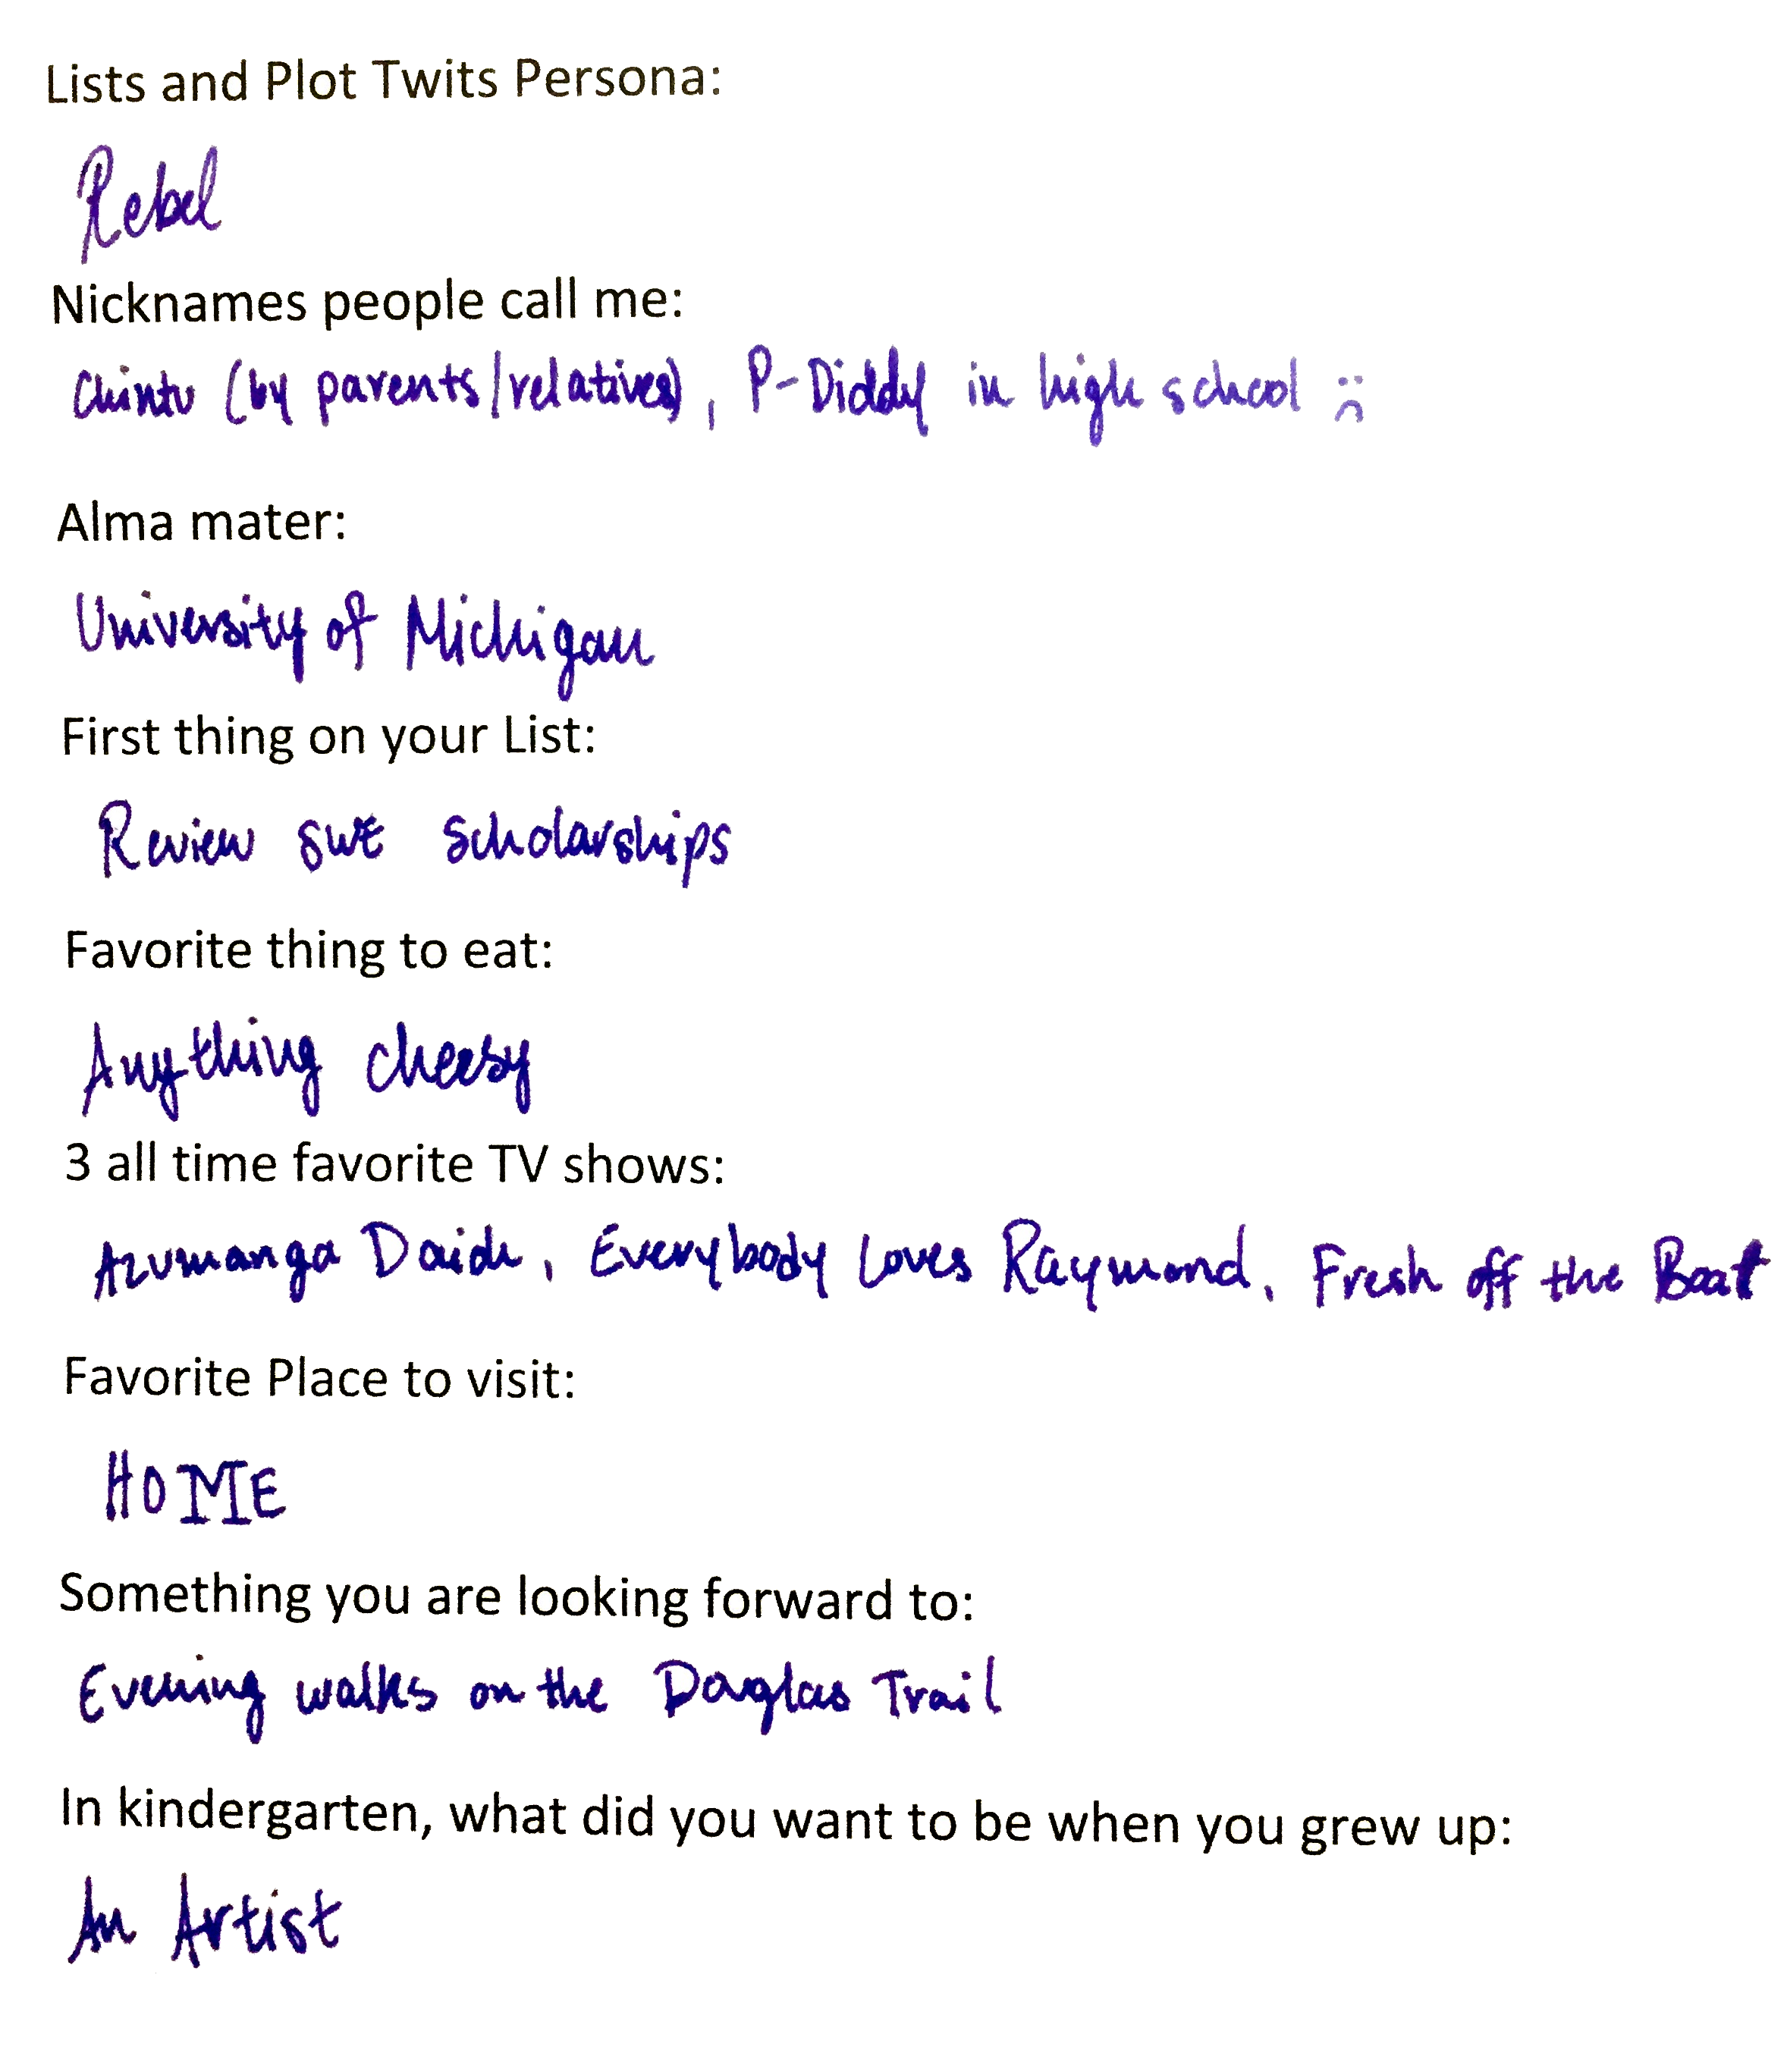 Lists and Plot Twits Persona:
Rebel
Nicknames people call me:
Chintu (by parents/relatives), P-Diddy in high school :(
Alma mater:
University of Michigan
First thing on your List:
Review SWE Scholarships
Favorite thing to eat:
Anything cheesy
3 all time favorite TV shows:
Azumanga Daioh, Everybody Loves Raymond, Fresh off the Boat
Favorite Place to visit:
HOME
Something you are looking forward to:
Evening walks on the Douglas Trail
In kindergarten, what did you want to be when you grew up:
An Artist